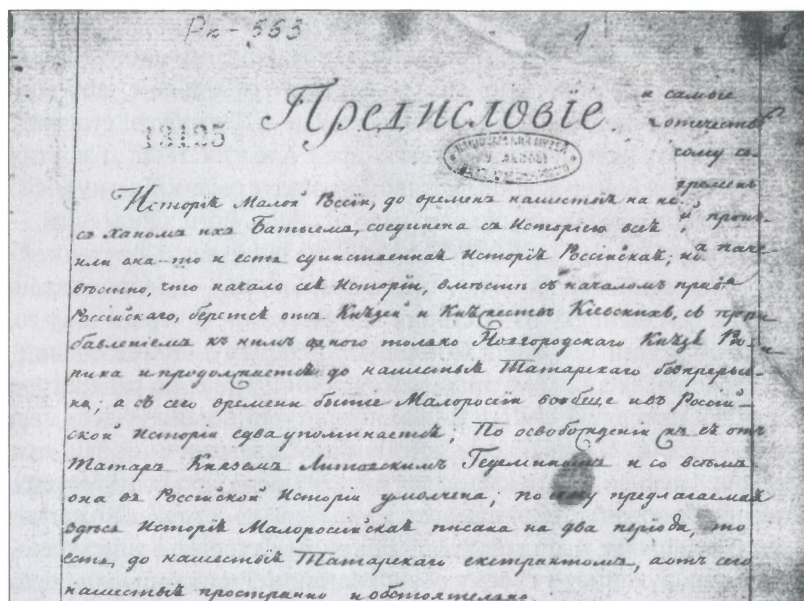 Рк-563
1
Предисловїе
13125
и самые
отечеств
тому со-
времень
Исторіѣ Малой Россіи, до временъ нашествіѣ на не
съ ханомъ ихъ Батыемъ, соединена съ Исторіею всеѣ
или она-то и есть единственнаѣ Исторіѣ Россійскаѣ; и
а паче
вѣстно, что начало сеѣ Исторіи, вмѣстѣ съ началомъ прав
Россійскаго, беретсѣ отъ Кнѣзей и Кнѣжествъ Кіевскихъ, съ при
бавленіемъ къ нимъ одного только Новгородскаго Кнѣзѣ Рю-
рика и продолжаетсѣ до нашествіѣ Татарскаго безпрерыв-
но; а съ сего времени бытіе Малоросіи вообще и въ Россій-
ской Исторіи едва упоминаетсѣ; По освобожденіи жъ еѣ отъ
Татаръ Княземъ Литовскимъ Гедеминомъ и со всѣмъ
она въ Россійской Исторіи умолчена; по предлагаемаѣ
здѣсь Исторіѣ Малоросійскаѣ писана на два періода, то
есть, до нашествіѣ Татарскаго екстрактомъ, а отъ сего
нашествіѣ пространно и обстоятельно